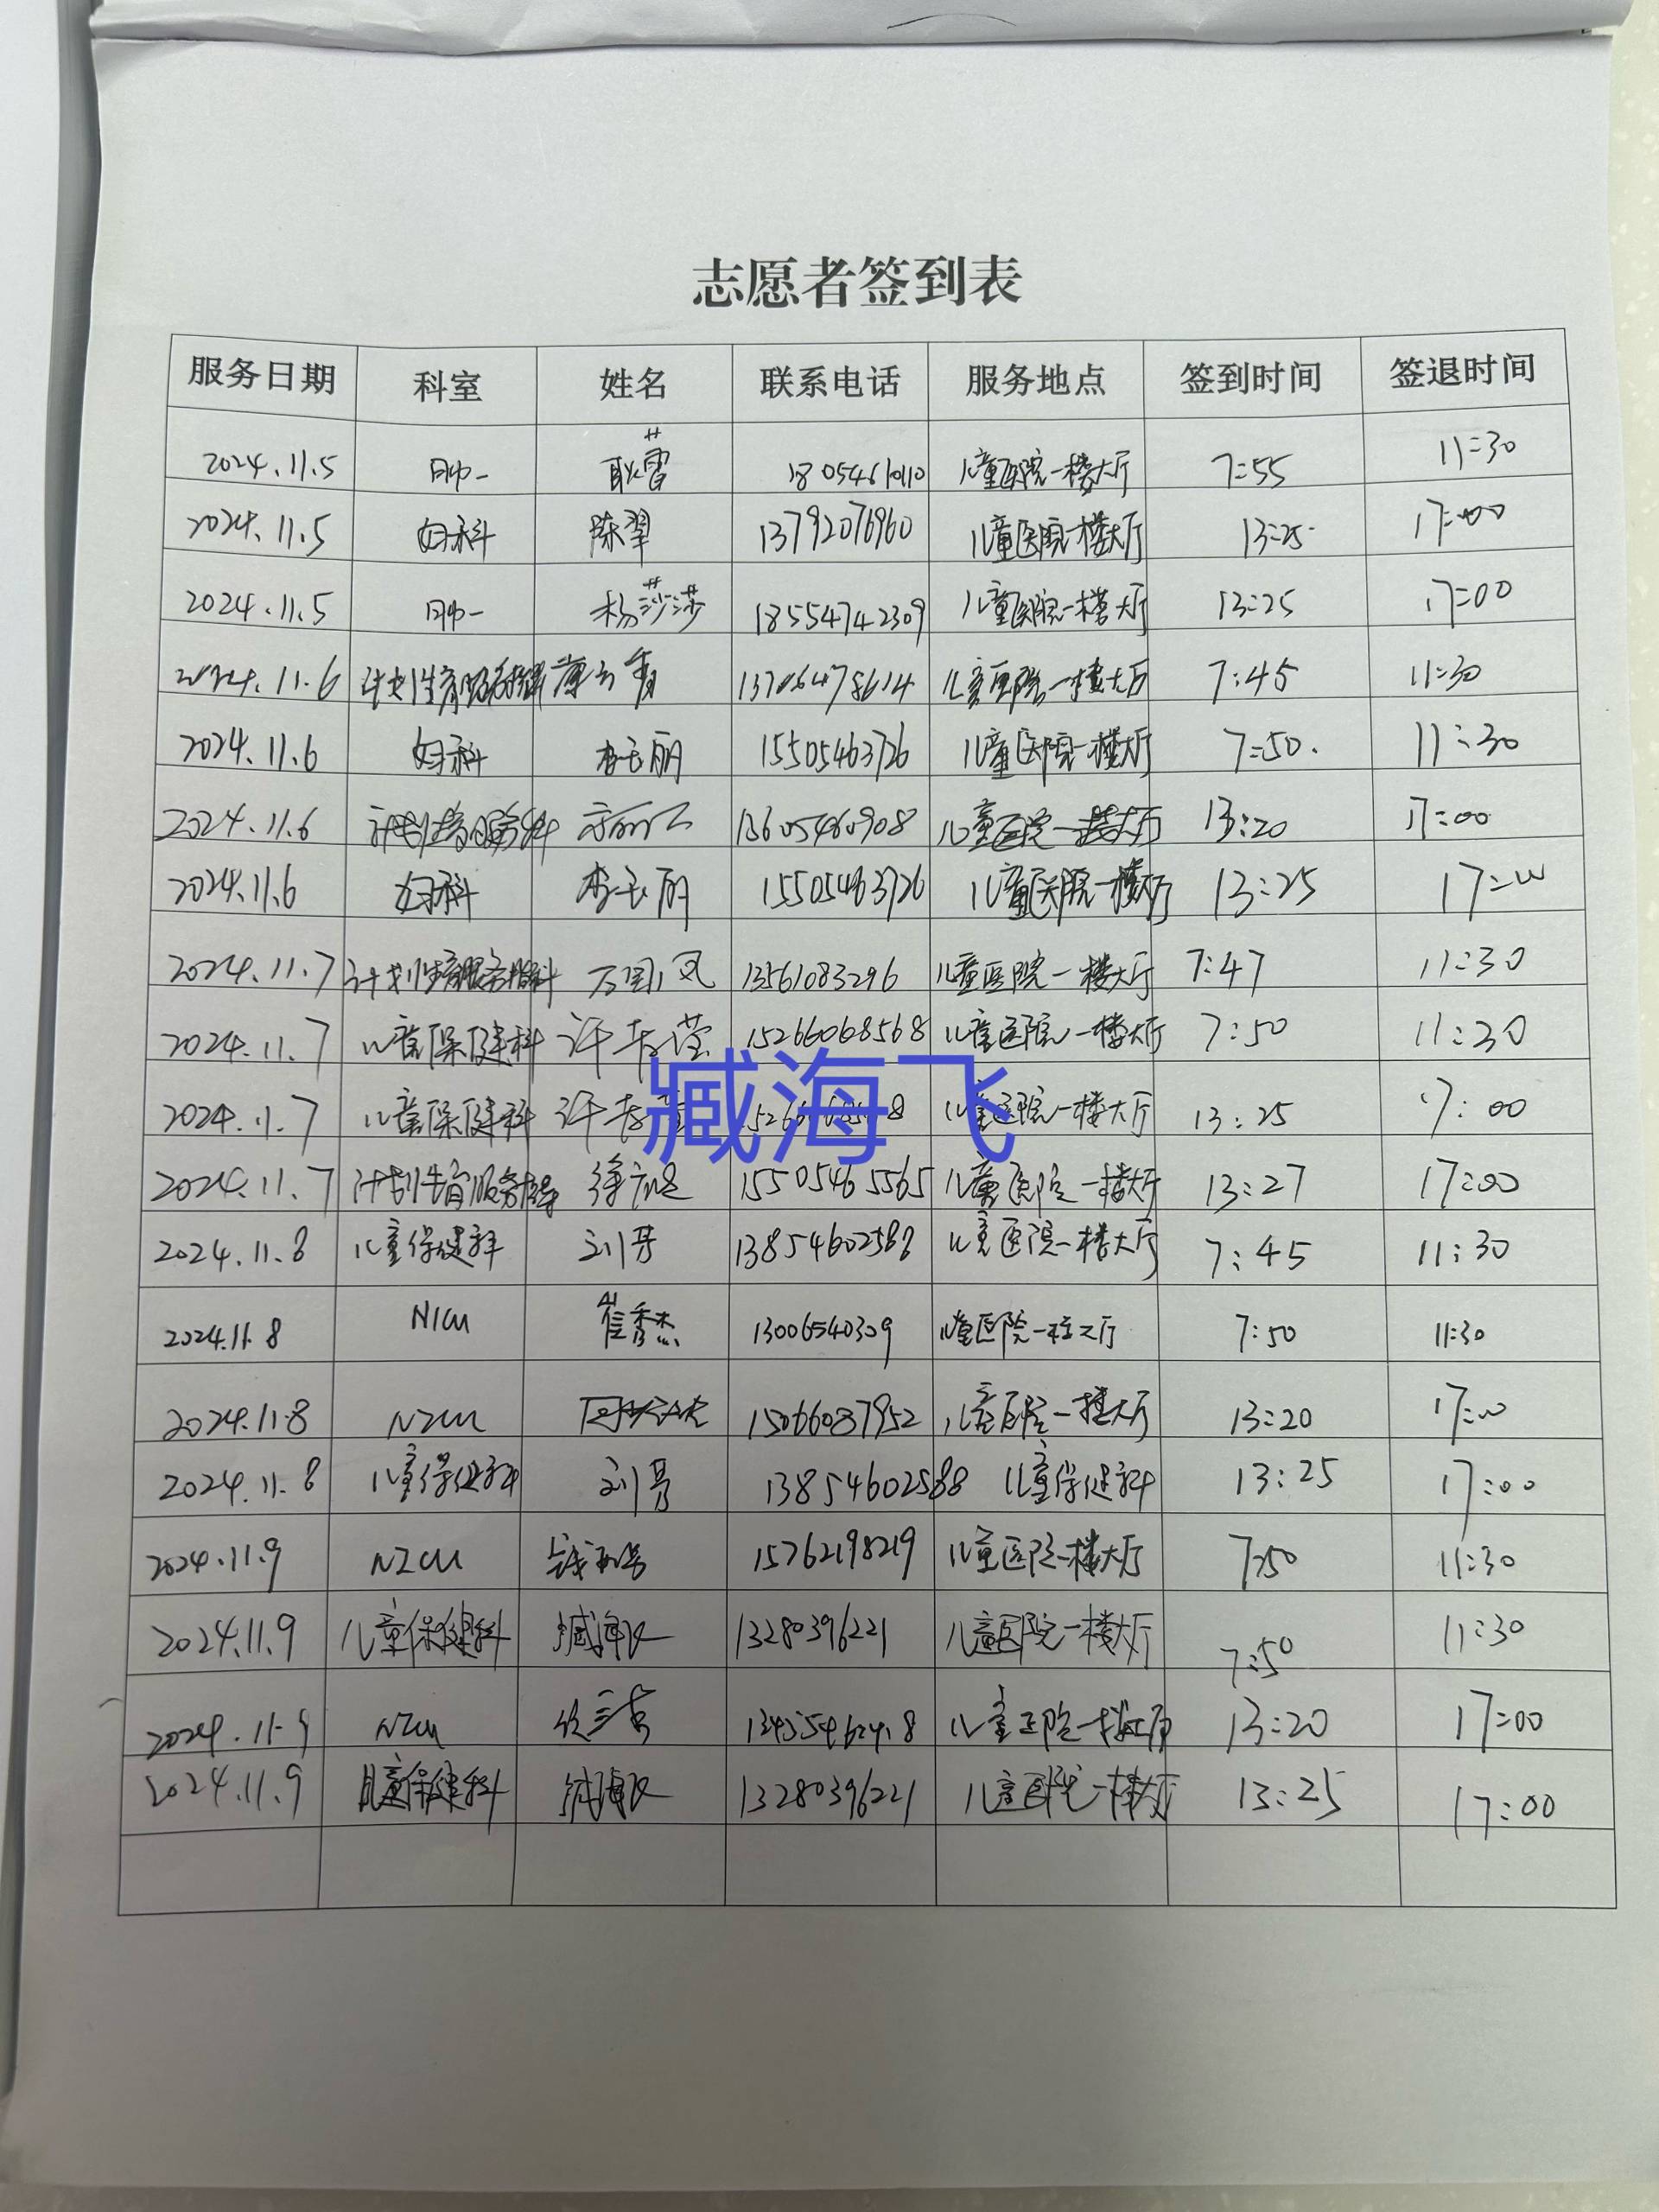 志愿者签到表
服务日期 科室 姓名 联系电话 服务地点 签到时间 签退时间
2024.11.5 耿蕾 18054610110 儿童医院一楼大厅 7:55 11:30
2024.11.5 妇科 陈翠 13792076960 儿童医院一楼大厅 13:25 17:00
2024.11.5 杨莎莎 18554742309 儿童医院一楼大厅 13:25 17:00
2024.11.6 儿童医院一楼大厅 7:45 11:30
2024.11.6 妇科 李玉丽 15505463726 儿童医院一楼大厅 7:50 11:30
2024.11.6 13605460908 儿童医院一楼大厅 13:20 17:00
2024.11.6 妇科 李玉丽 15505463726 儿童医院一楼大厅 13:25 17:00
2024.11.7 13561083296 儿童医院一楼大厅 7:47 11:30
2024.11.7 儿童保健科 15266068568 儿童医院一楼大厅 7:50 11:30
2024.11.7 儿童保健科 儿童医院一楼大厅 13:25 17:00
臧海飞
2024.11.7 15505465565 儿童医院一楼大厅 13:27 17:00
2024.11.8 儿童保健科 刘芳 13854602588 儿童医院一楼大厅 7:45 11:30
2024.11.8 NICU 崔秀杰 13006540309 儿童医院一楼大厅 7:50 11:30
2024.11.8 NICU 15066037952 儿童医院一楼大厅 13:20 17:00
2024.11.8 儿童保健科 刘芳 13854602588 儿童保健科 13:25 17:00
2024.11.9 NICU 15762198219 儿童医院一楼大厅 7:50 11:30
2024.11.9 儿童保健科 臧海飞 13280396221 儿童医院一楼大厅 7:50 11:30
2024.11.9 NICU 儿童医院一楼大厅 13:20 17:00
2024.11.9 儿童保健科 臧海飞 13280396221 儿童医院一楼大厅 13:25 17:00